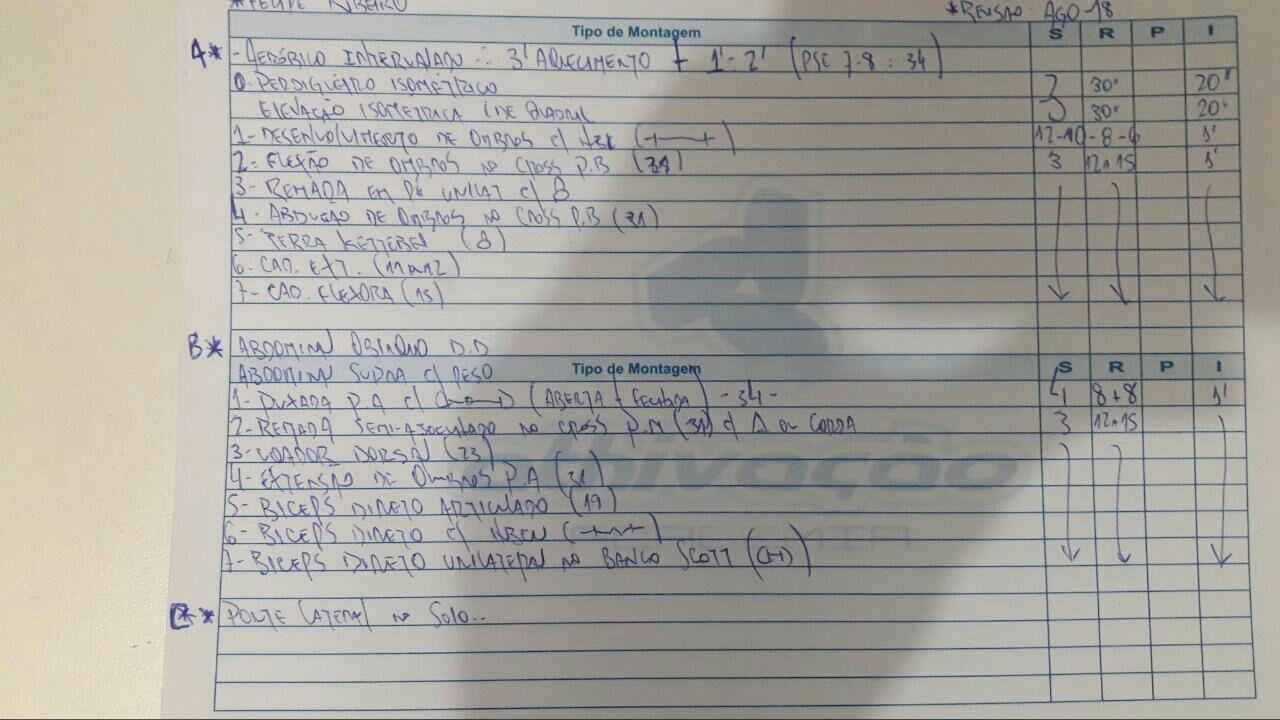 *FELIPE RIBEIRO
*REVISÃO: AGO 18
Tipo de Montagem S R P I
A* - AERÓBICO INTERVALADO :. 3' AQUECIMENTO + 1'-2' (PSE 7-8 : 34)
0. PERDIGUEIRO ISOMÉTRICO 3 30" 20"
ELEVAÇÃO ISOMÉTRICA DE QUADRIL 30" 20"
1- DESENVOLVIMENTO DE OMBROS c/ 12-10-8-6 1'
2- FLEXÃO DE OMBROS NO CROSS P.B (31) 3 12 a 15 1'
3- REMADA EM PÉ UNILAT c/
4- ABDUÇÃO DE OMBROS NO CROSS P.B (31)
5- TERRA KETTEBEL (8)
6- CAD. EXT. (11 a 12)
7- CAD. FLEXORA (15)
B* ABDOMINAL OBLÍQUO D.D
ABDOMINAL SUPRA c/ PESO
Tipo de Montagem S R P I
1- PUXADA P.A c/ (ABERTA + FECHADA) -34- 4 8+8 1'
2- REMADA SEMI-AJOELHADO NO CROSS P.M (31) c/ Δ ou CORDA 3 12 a 15
3- VOADOR DORSAL (23)
4- EXTENSÃO DE OMBROS P.A (31)
5- BICEPS DIRETO ARTICULADO (19)
6- BICEPS DIRETO c/
7- BICEPS DIRETO UNILATERAL NO BANCO SCOTT
C** PONTE LATERAL NO SOLO..
ativação
ACADEMIA